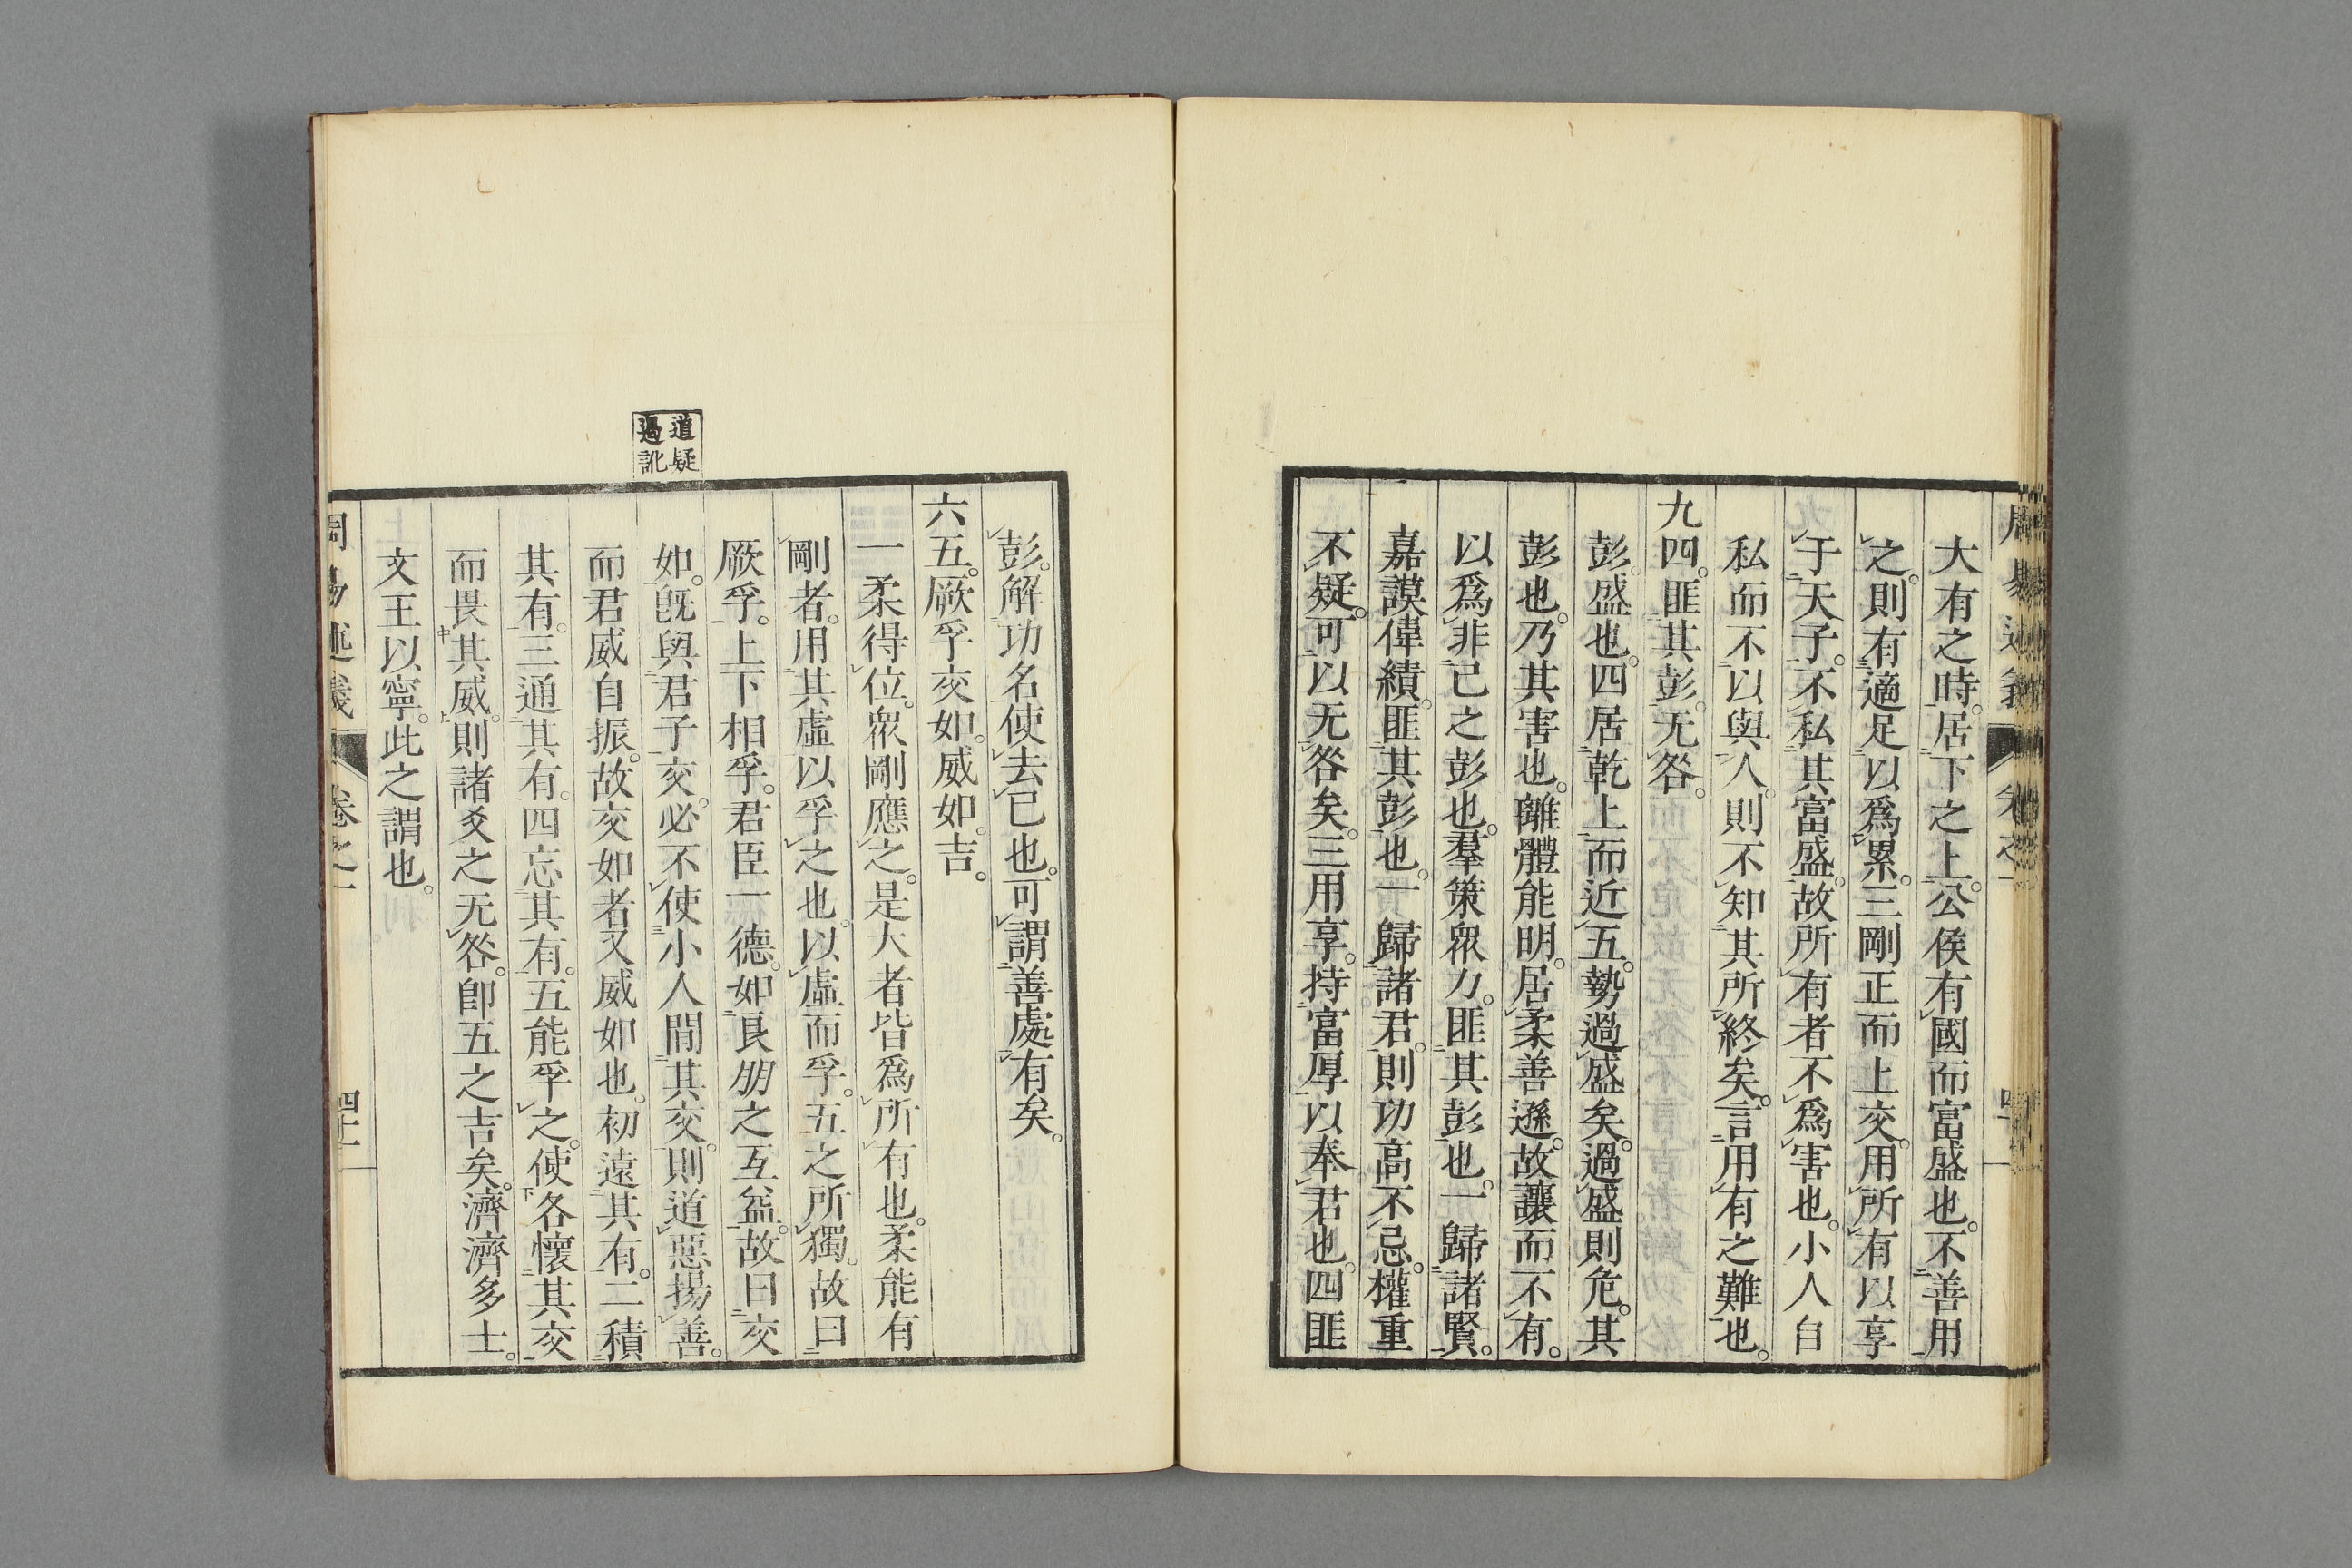 大有之時。居下之上。公侯有國而富盛也。不善用
之。則有適足以爲累。三剛正而上交。用所有以享
于天子。不私其富盛。故所有者不爲害也。小人自
私而不以與人。則不知其所終矣。言用有之難也。
九四。匪其彭。无咎。
彭。盛也。四居乾上而近五。勢過盛矣。過盛則危。其
彭也。乃其害也。離體能明。居柔善遜。故讓而不有。
以爲非己之彭也。羣策衆力。匪其彭也。一歸諸賢。
嘉謨偉績。匪其彭也。一歸諸君。則功高不忌。權重
不疑。可以无咎矣。三用享。持富厚以奉君也。四匪
彭。解功名使去已也。可謂善處有矣。
六五。厥孚交如。威如。吉。
一柔得位。衆剛應之。是大者皆爲所有也。柔能有
剛者。用其虛以孚之也。以虛而孚。五之所獨。故曰
厥孚。上下相孚。君臣一德。如良朋之互益。故曰交
如。旣與君子交。必不使小人間其交。則道惡揚善。
而君威自振。故交如者又威如也。初遠其有。二積
其有。三通其有。四忘其有。五能孚之。使各懷其交
而畏其威。則諸爻之无咎。卽五之吉矣。濟濟多士。
文王以寧。此之謂也。
道疑
遏訛
周易述義 卷之一 四十二